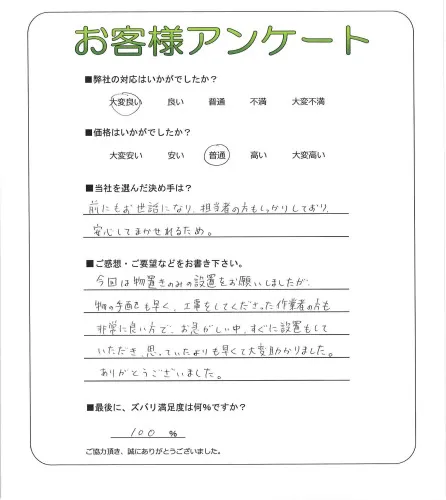 お客様アンケート
■弊社の対応はいかがでしたか？
大変良い 良い 普通 不満 大変不満
■価格はいかがでしたか？
大変安い 安い 普通 高い 大変高い
■当社を選んだ決め手は？
前にもお世話になり、担当者の方もしっかりしており、
安心してまかせれるため。
■ご感想・ご要望などをお書き下さい。
今回は物置きのみの設置をお願いしましたが、
物の手配も早く、工事をしてくださった作業者の方も
非常に良い方で、お急がしい中、すぐに設置もして
いただき、思っていたよりも早くて大変助かりました。
ありがとうございました。
■最後に、ズバリ満足度は何%ですか？
100 %
ご協力頂き、誠にありがとうございました。